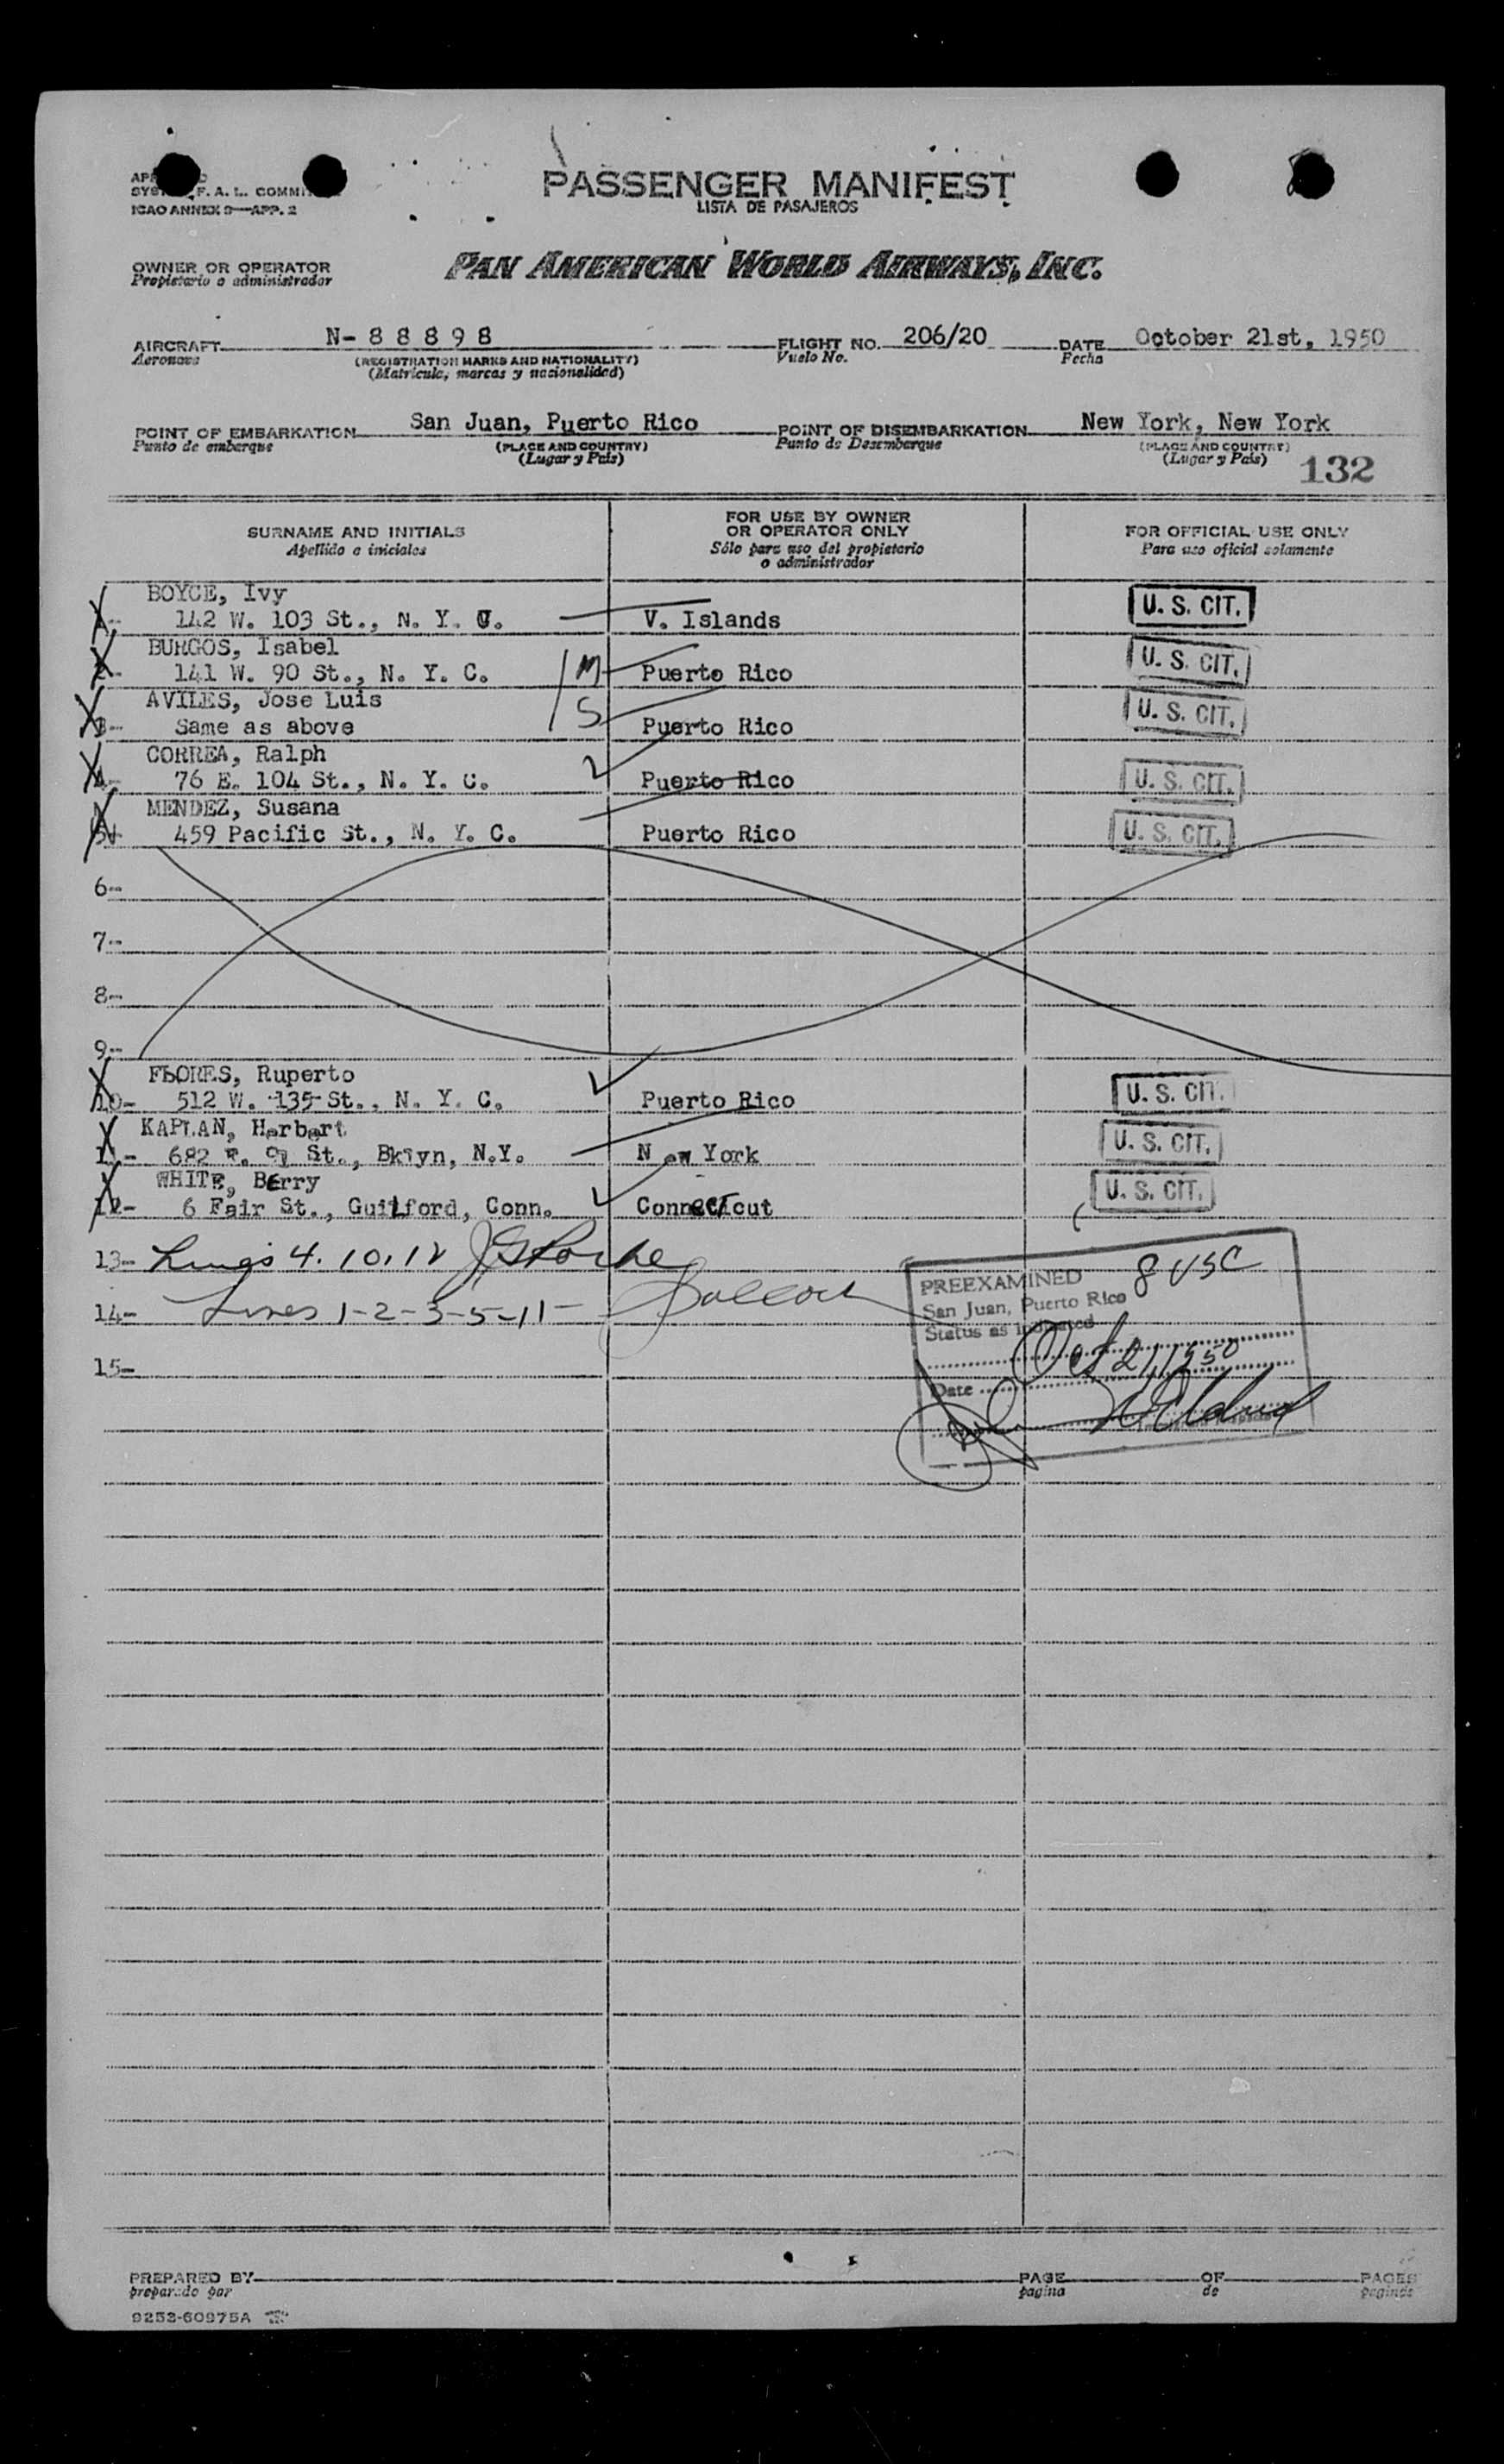 SYST F. A. L. COMMIT
ICAO ANNEX 9—APP. 2
PASSENGER MANIFEST
LISTA DE PASAJEROS
OWNER OR OPERATOR
Propietario o administrador
PAN AMERICAN WORLD AIRWAYS, INC.
AIRCRAFT N- 8 8 8 9 8 FLIGHT NO. 206/20 DATE October 21st, 1950
Aeronave (REGISTRATION MARKS AND NATIONALITY) Vuelo No. Fecha
(Matricula, marcas y nacionalidad)
POINT OF EMBARKATION San Juan, Puerto Rico POINT OF DISEMBARKATION New York, New York
Punto de embarque (PLACE AND COUNTRY) Punto de Desembarque (PLACE AND COUNTRY)
(Lugar y País) (Lugar y País) 132
SURNAME AND INITIALS FOR USE BY OWNER OR OPERATOR ONLY FOR OFFICIAL USE ONLY
Apellido e iniciales Sólo para uso del propietario o administrador Para uso oficial solamente
BOYCE, Ivy U. S. CIT.
1- 142 W. 103 St., N. Y. C. V. Islands
BURGOS, Isabel U. S. CIT.
2- 141 W. 90 St., N. Y. C. M Puerto Rico
AVILES, Jose Luis U. S. CIT.
3- Same as above S Puerto Rico
CORREA, Ralph
4- 76 E. 104 St., N. Y. C. Puerto Rico U. S. CIT.
MENDEZ, Susana
5- 459 Pacific St., N. Y. C. Puerto Rico U. S. CIT.
6-
7-
8-
9-
FLORES, Ruperto
10- 512 W. 135 St., N. Y. C. Puerto Rico U. S. CIT.
KAPLAN, Herbert
11- 682 St., Bklyn, N.Y. New York U. S. CIT.
WHITE, Berry
12- 6 Fair St., Guilford, Conn. Connecticut U. S. CIT.
13- Lines 4. 10. 12
14- Lines 1-2-3-5-11-
15-
PREEXAMINED 8 USC
San Juan, Puerto Rico
Status as indicated
Oct 21, 1950
Date
PREPARED BY PAGE OF PAGES
preparado por pagina de paginas
9252-60975A